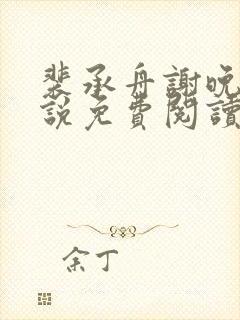 裴承舟謝晚
說免費閱讀
余丁